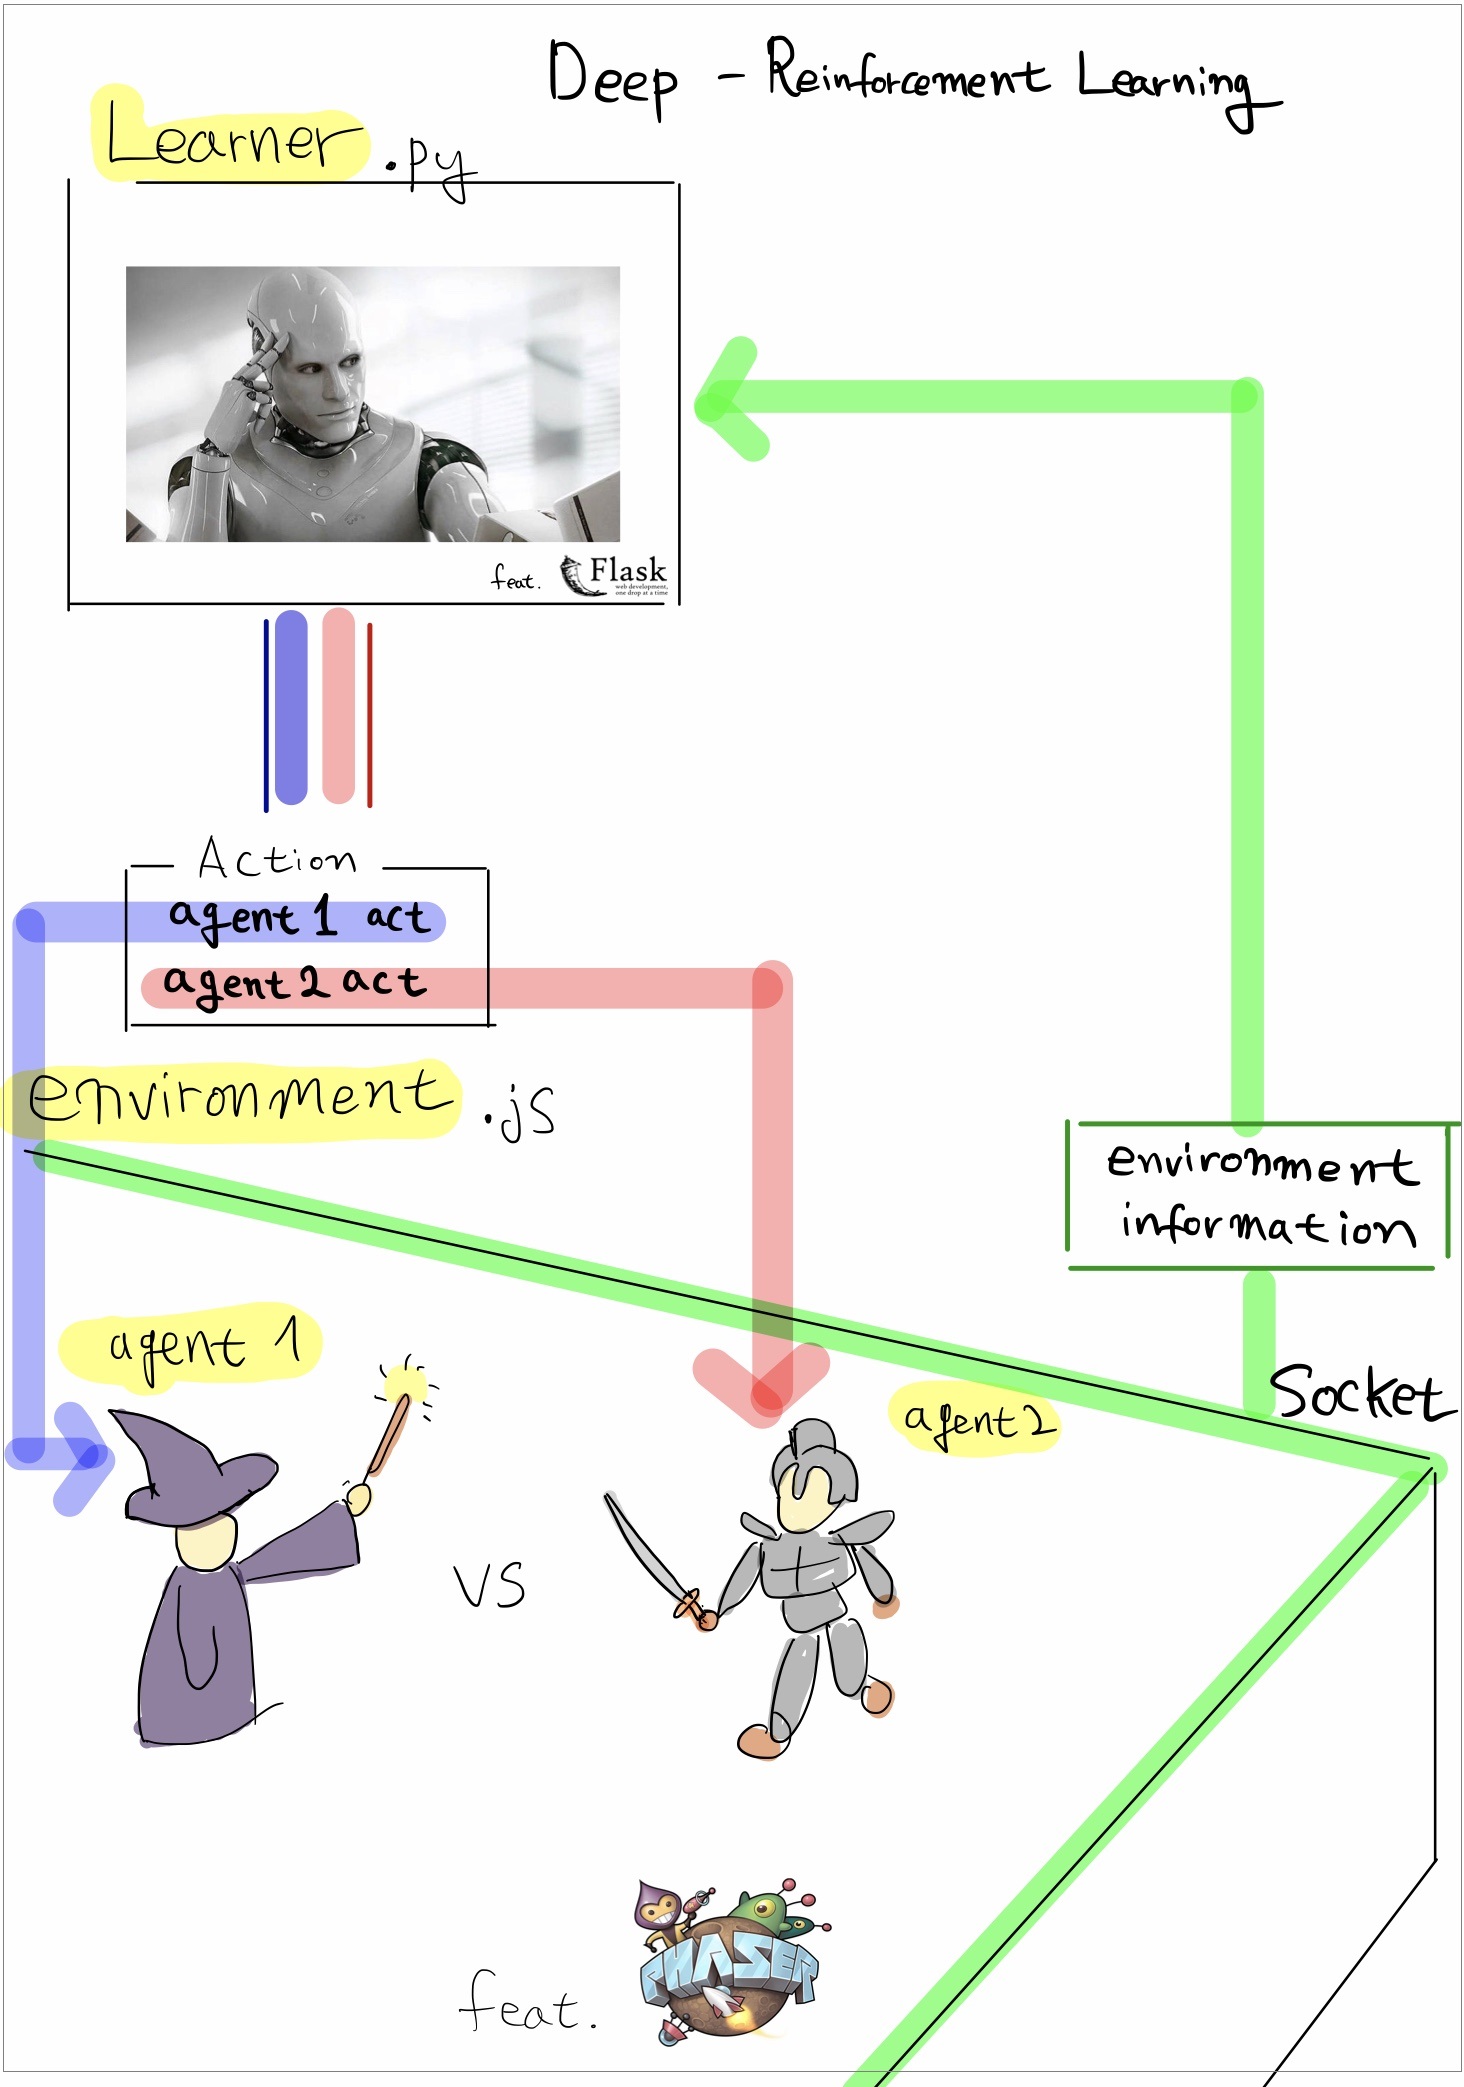 Deep - Reinforcement Learning
Learner .py
feat. Flask
web development,
one drop at a time
Action
agent 1 act
agent 2 act
environment .js
environment
information
Socket
agent 1
agent 2
vs
feat. PHASER